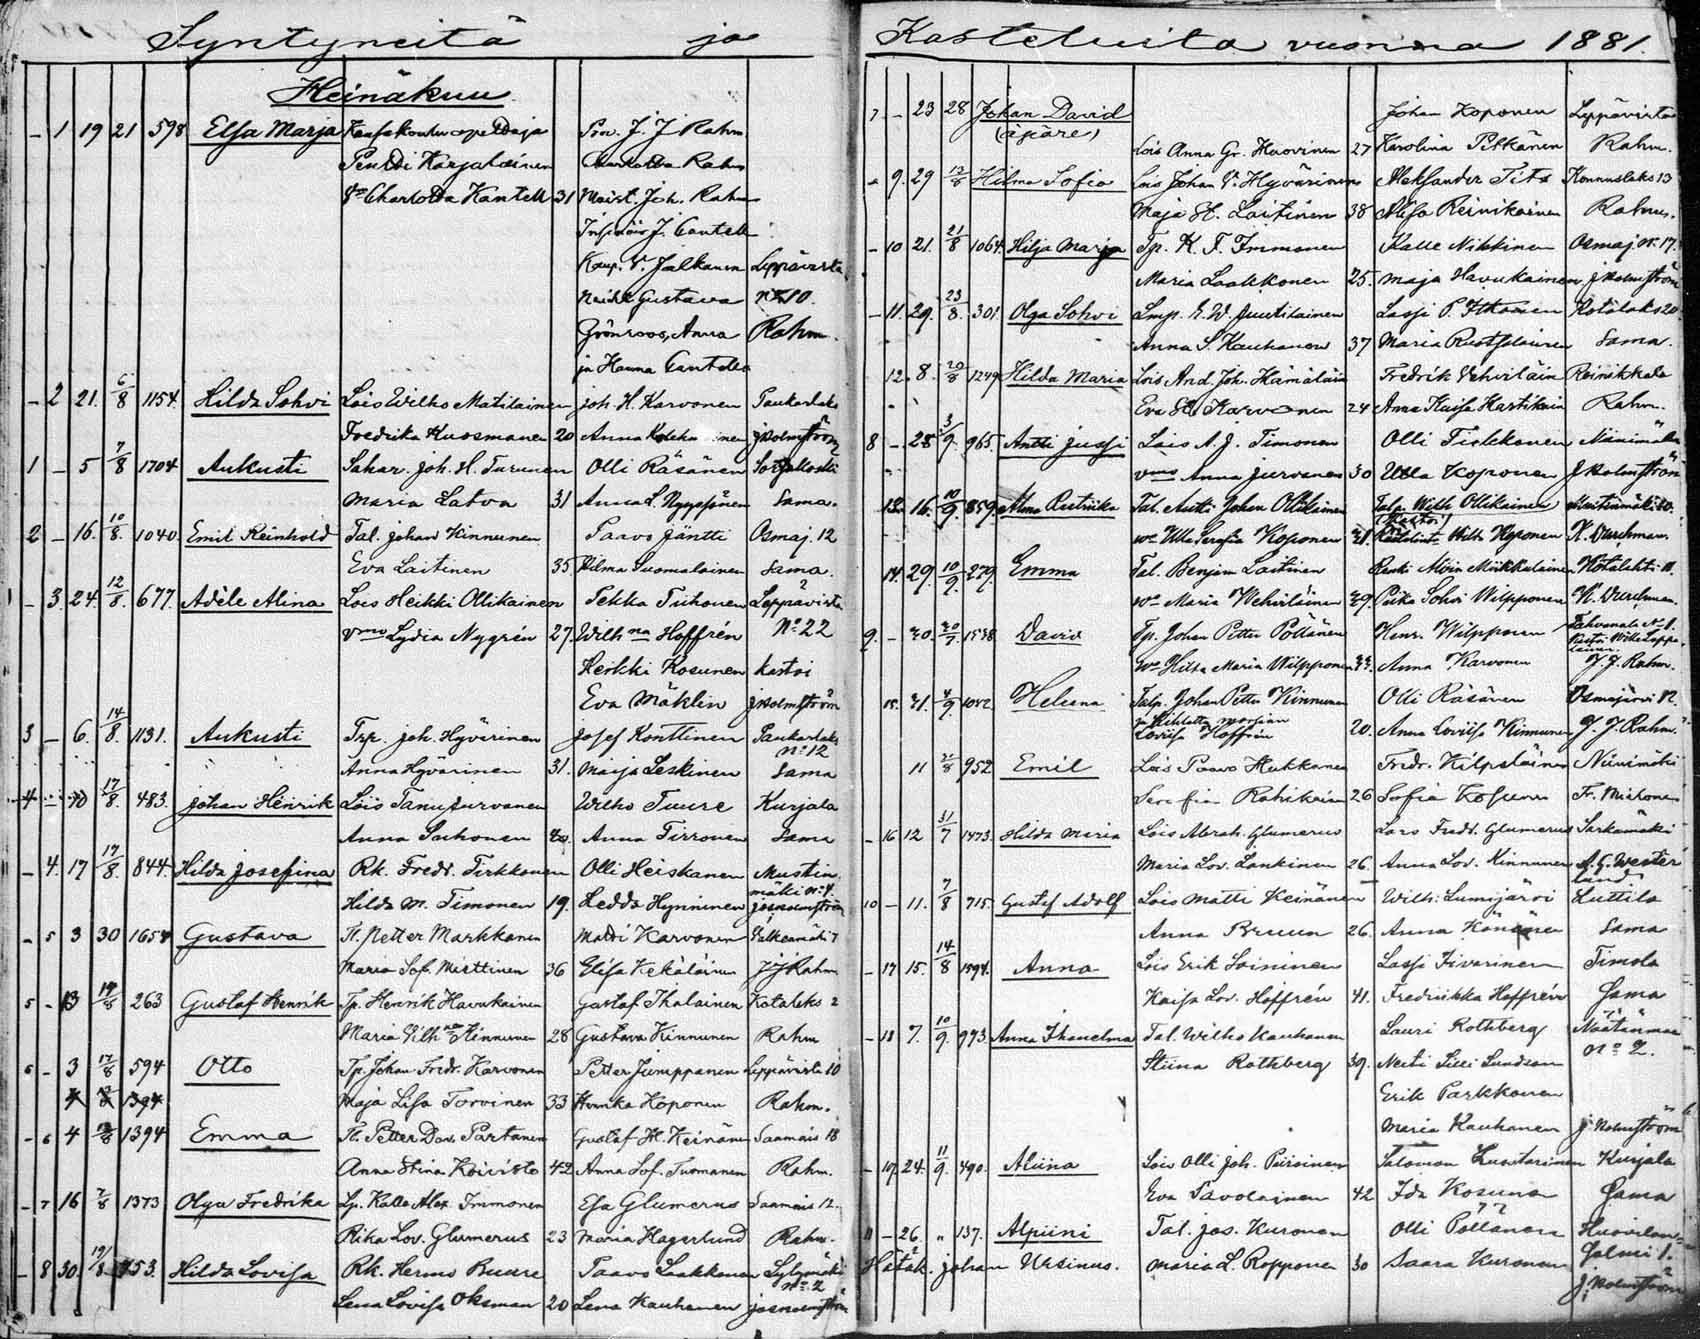 Syntyneitä ja
Heinäkuu
- 1 19 21 598 Elsa Marja Kansakoulun opettaja Prov. J. J. Rahm.
Pentti Karjalainen Charlotta Rahm
Charlotta Kantell 31 Maist. Joh. Rahm
J. Cantell
Kaup. V. Jalkanen Leppävirta
Neidet Gustava No 10.
Grönroos, Anna Rahm.
ja Hanna Cantell
- 2 21. 6/8 1154. Hilda Sohvi Lois Wilho Matilainen Joh. H. Karvonen Paukarlaks
Fredrika Kuosmanen 20 Anna J Holmström
1 - 5 7/8 1704 Aukusti Joh. H. Turunen Olli Räsänen Sorsakoski
Maria Latva 31 Anna L. Nyyssönen Sama.
2 - 16. 10/8. 1040. Emil Reinhold Tal. Johan Kinnunen Paavo Jäntti Osmaj. 12
Eva Laitinen 35. Wilma Suomalainen Sama.
- 3. 24. 12/8. 677. Adéle Alina Lois Heikki Ollikainen Pekka Tiihonen Leppävirta
Lydia Nygrén 27. Wilhna Hoffrén No 22
Heikki Kosunen kasvoi
Eva Mäklin J Holmström
3 - 6. 14/8. 1131. Aukusti Tsp. Joh. Hyvärinen Josef Konttinen Paukarlaks
No 12
Anna Hyvärinen 31. Maija Leskinen Sama
4 - 10 17/8. 483. Johan Henrik Lois Tanu Jurvanen Wilho Tuure Kurjala
Anna Sarhonen 20. Anna Tirronen Sama
- 4. 17 17/8. 844. Hilda Josefina Rk. Fredr. Tirkkonen Olli Heiskanen Mustin
mäki No 4.
Hilda M. Timonen 19. Hedda Hynninen
- 5 3 30 1654 Gustava It. Petter Markkanen Matti Karvonen 7
Maria Sof. Miettinen 36 Elisa Kekäläinen J J Rahm
5 - 13 14/8 263 Gustaf Henrik Tp. Henrik Havukainen Gustaf Ihalainen Kotalaks 2
Maria Vilhna Kinnunen 28 Gustava Kinnunen Rahm
6 - 3 17/8 594 Otto Tp. Johan Fredr. Karvonen Petter Jumppanen Leppävirta 10
1394 Maja Lisa Torvinen 33 Henrika Koponen Rahm.
- 6 4 1394 Emma It. Petter Dav. Partanen Gustaf H. Keinänen Saamais 18
Anna Stina Koivisto 42 Anna Sof. Tuomanen Rahm.
- 7 16 7/8 1373 Olga Fredrika Lp. Kalle Alex Immonen Esa Glumerus Saamais 12.
Rika Lov. Glumerus 23 Maria Hagerlund Rahm.
- 8 30 19/8 453. Hilda Lovisa Rk. Hermo Buure Paavo Laakkonen
No 2
Lena Lovisa Oksman 20 Lena Kauhanen
Kastetuita vuonna 1881.
7 - 23 28 Johan David Johan Koponen Leppävirta
(äpäre)
Lois Anna Gr. Huovinen 27 Karolina Pitkänen Rahm.
- 9. 29 13/8 Hilma Sofia Lois Johan V. Hyvärinen Aleksander Tits Konnuslaks 13
Maja St. Laitinen 38 Elisa Reinikainen Rahm.
- 10 21. 21/8 1064. Hilja Marja Tp. K. F. Immonen Kalle Nikkinen Osmaj. No. 17.
Maria Laakkonen 25. Maja Havukainen J Holmström
- 11. 29. 23/8. 301. Olga Sohvi Lmp. E. W. Juutilainen Lassi P. Itkonen Kotalaks 20
Anna S. Kauhanen 37 Maria Ruotsalainen Sama.
12. 8. 20/8 1249 Hilda Maria Lois And. Joh. Hämäläin Fredrik Vehviläin Reinikkala
Eva St. Karvonen 24 Anna Kaisa Hartikain Rahm.
8 - 28 3/9. 965. Antti Jussi Lois A. J. Timonen Olli Tiskkonen Niinimäki
Anna Jurvanen 30 Ulla Koponen J Holmström
13. 16. 10/9. 859. Alma Ristiika Tal. Antti Johan Ollikainen Talp. Wilh Ollikainen Mustinmäki 10.
Ulla Serafia Koponen 21. Wilh. Koponen K. Durchman.
14. 29. 10/9. 279. Emma Tal. Benjam Laitinen Renki Alvin Miikkulainen Kotalahti 11.
Maria Wehviläinen 29. Piika Sohvi Wilpponen K. Durchman.
9. - 20. 20/9. 1538 David Tp. Johan Petter Pöllänen Henr. Wilpponen
Hilda Maria Wilpponen 22. Anna Karvonen J. J. Rahm.
15. 21. 4/9. 1042 Helena Talp. Johan Petter Kinnunen Olli Räsänen Osmajärvi 12.
ja Kihlattu morsian
Lovisa Hoffrén 20. Anna Lovisa Kinnunen J. J. Rahm.
11 21/8 952 Emil Lois Paavo Hukkanen Fredr. Kilpeläinen Niinimäki
Serafia Rahikain 26 Sofia Kosunen Fr. Mietonen
- 16 12 31/7 1473. Hilda Maria Lois Abrah. Glumerus Lars Fredr. Glumerus Sarkamäki
Maria Lov. Lankinen 26. Anna Lov. Kinnunen A. G. Wester
lund
10 - 11. 7/8 715. Gustaf Adolf Lois Matti Keinänen Wilh. Lumijärvi Luttila
Anna Bruun 26. Anna Könönen Sama
- 17 15. 14/8 1594. Anna Lois Erik Soininen Lassi Iivarinen Timola
Kaisa Lov. Hoffrén 41. Fredriikka Hoffrén Sama
- 18 7. 10/9. 973. Anna Tal. Wilho Kauhanen Lauri Rothberg Näätinmaa
No 2.
Stiina Rothberg 39. Neiti Lilli Sundson
Erik Parkkonen
Maria Kauhanen J. Holmström
- 19 24. 11/9. 490. Aliina Lois Olli Joh. Piirinen Salomon Kurjala
Eva Savolainen 42 Ida Kosunen Sama
11 - 26. " 137. Alpiini Tal. Jos. Kuronen Olli Pöllänen
Salmi 1.
Hätäk. Johan Ursinus. Maria L. Ropponen 30 Saara Kuronen
J. Holmström